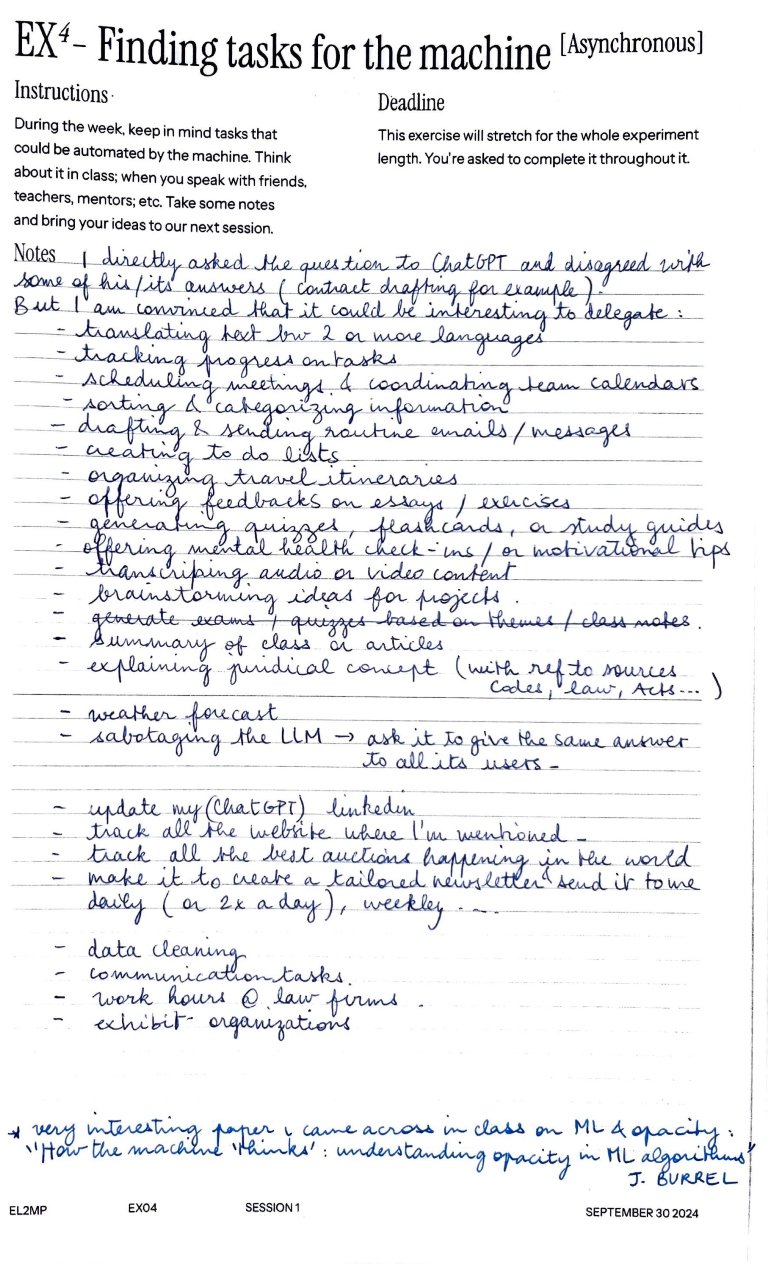 EX⁴- Finding tasks for the machine [Asynchronous]
Instructions
During the week, keep in mind tasks that
could be automated by the machine. Think
about it in class; when you speak with friends,
teachers, mentors; etc. Take some notes
and bring your ideas to our next session.
Deadline
This exercise will stretch for the whole experiment
length. You're asked to complete it throughout it.
Notes I directly asked the question to ChatGPT and disagreed with
some of his/its answers (contract drafting for example).
But I am convinced that it could be interesting to delegate :
- translating text bw 2 or more languages
- tracking progress on tasks
- scheduling meetings & coordinating team calendars
- sorting & categorizing information
- drafting & sending routine emails / messages
- creating to do lists
- organizing travel itineraries
- offering feedbacks on essays / exercises
- generating quizzes, flashcards, or study guides
- offering mental health check-ins / or motivational tips
- transcriping audio or video content
- brainstorming ideas for projects.
- generate exams / quizzes based on themes / class notes.
- summary of class or articles
- explaining juridical concept (with ref to sources
Codes, law, Acts... )
- weather forecast
- sabotaging the LLM → ask it to give the same answer
to all its users -
- update my (ChatGPT) linkedin
- track all the website where I'm mentioned -
- track all the best auctions happening in the world
- make it to create a tailored newsletter & send it to me
daily (or 2x a day), weekley ....
- data cleaning
- communication tasks.
- work hours @ law firms .
- exhibit organizations
* very interesting paper i came across in class on ML & opacity :
"How the machine 'thinks' : understanding opacity in ML algorithms"
J. BURREL
EL2MP
EX04
SESSION 1
SEPTEMBER 30 2024